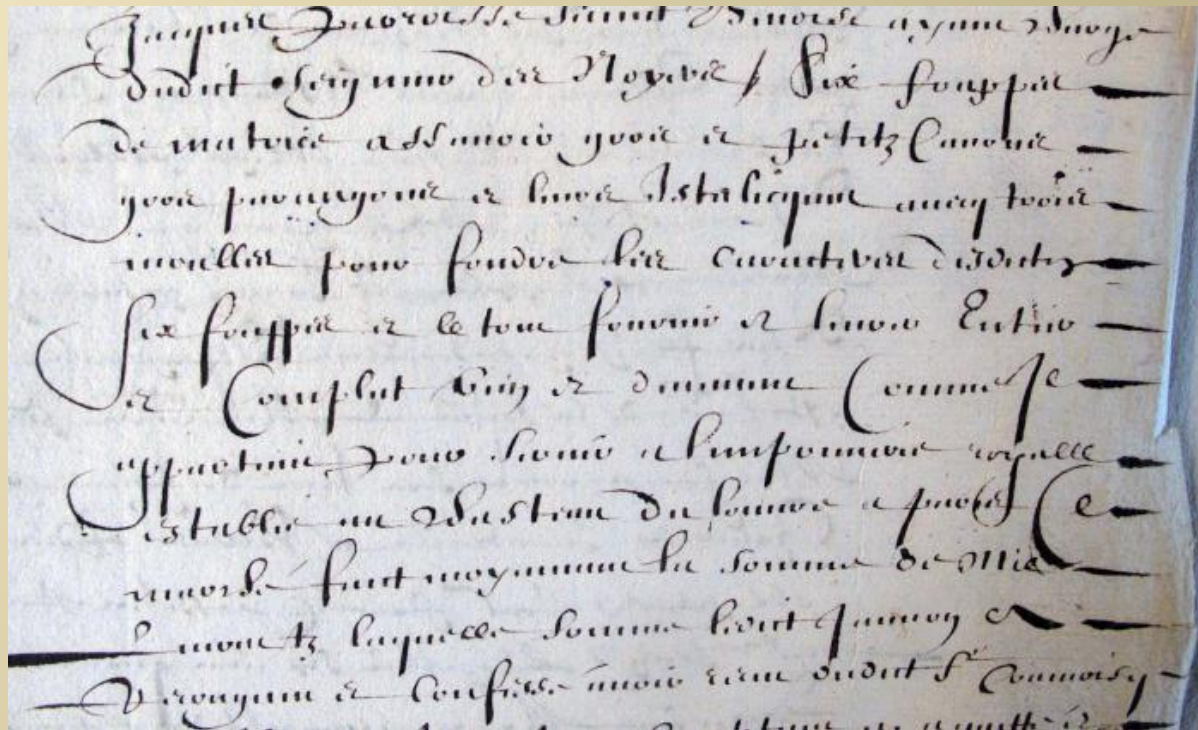 Jacques paroisse sainct Benoist ayant charge
dudict seigneur des Noyers / six frappes
de matrices assavoir gros et petitz Canons
gros parangons et leurs Istalicques avecq trois
moulles pour fondre les caracteres desdictes
six frappes et le tout fournir et livrer Entier
et Complet bien et deument Comme Il
appartient pour servir a limprimerie royalle
establie au chasteau du louvre a paris Ce
marché faict moyennant la somme de Mil
tz laquelle somme ledict Jannon a
recongneu et Confessé avoir receu dudict Sr Cramoisy